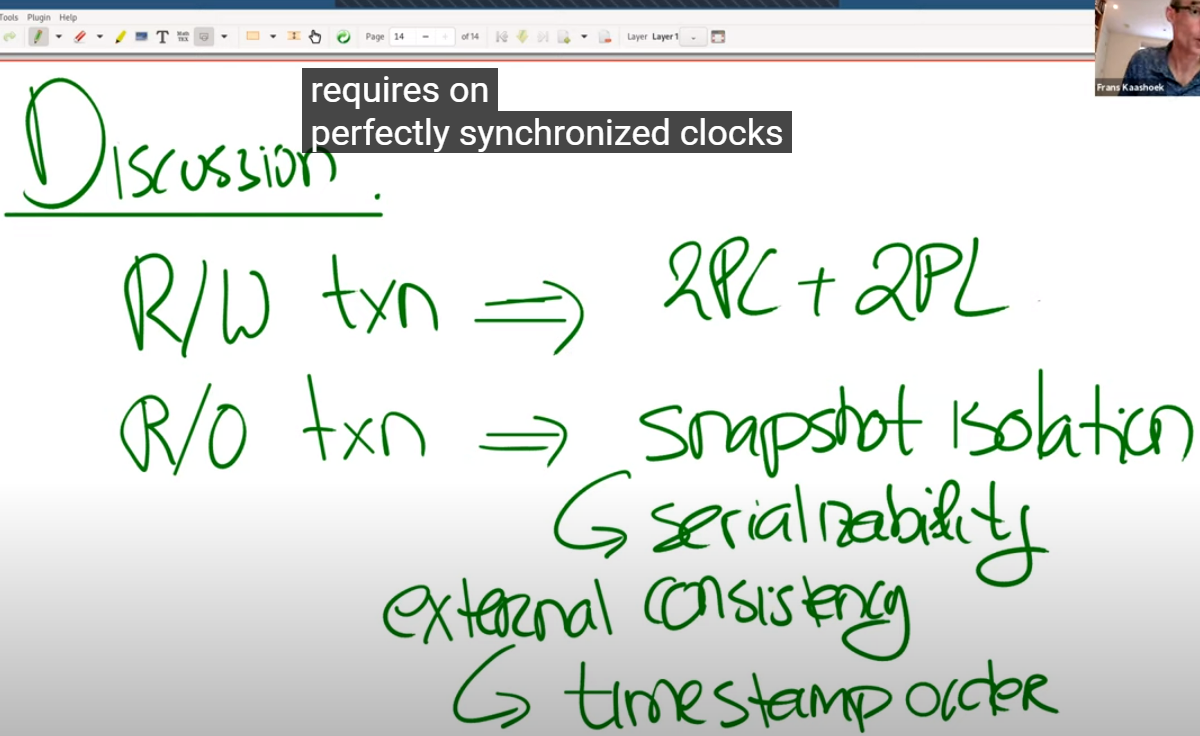 Tools Plugin Help
T Math TEX Page 14 - + of 14 Layer Layer 1
Frans Kaashoek
requires on
perfectly synchronized clocks
Discussion.
R/W txn ⇒ 2PC + 2PL
R/O txn ⇒ snapshot isolation
↪ serializability
external consistency
↪ timestamp order